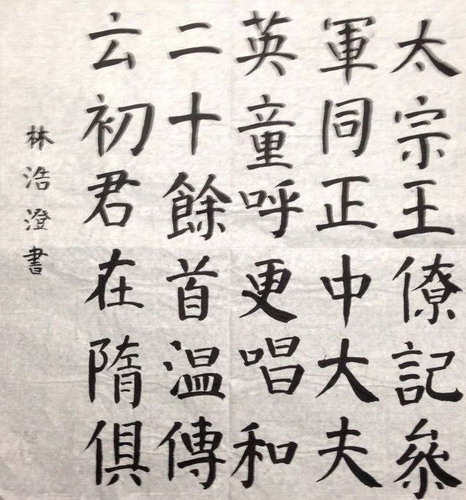 太宗王僚記叅
軍同正中大夫
英童呼更唱和
二十餘首温傳
云初君在隋俱
林浩澄書